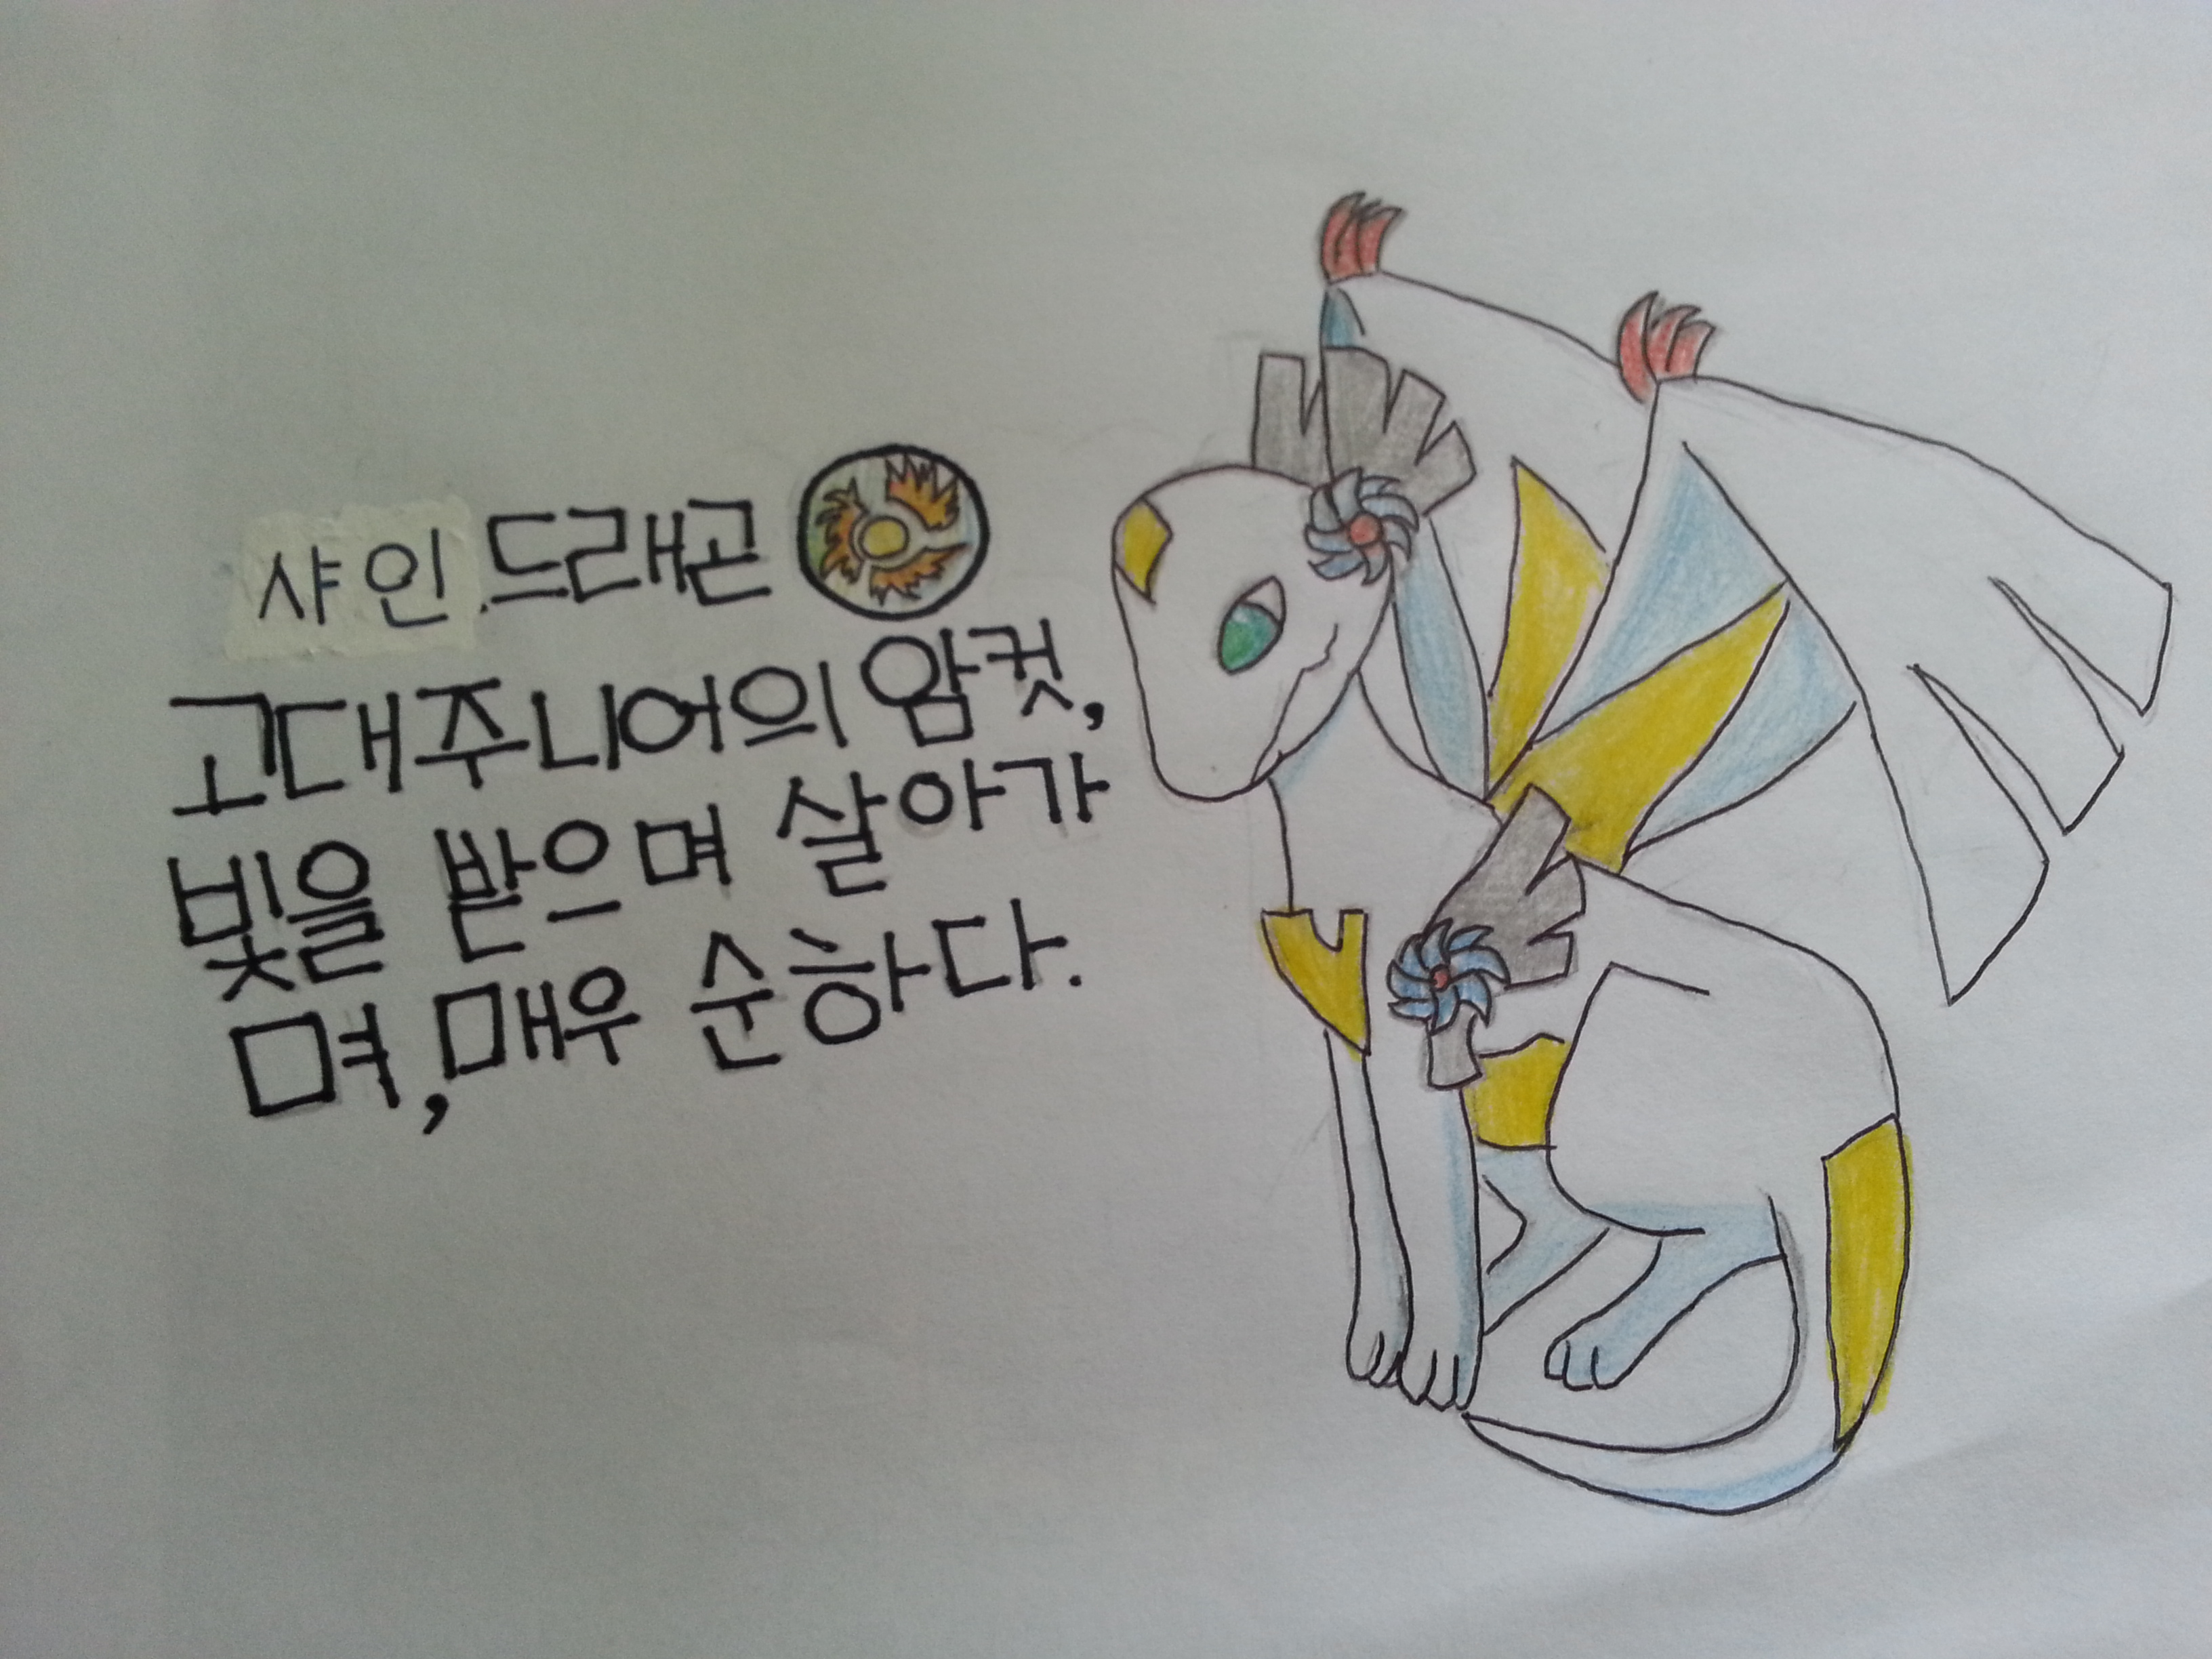 샤인 드래곤
고대주니어의 암컷,
빛을 받으며 살아가
며, 매우 순하다.